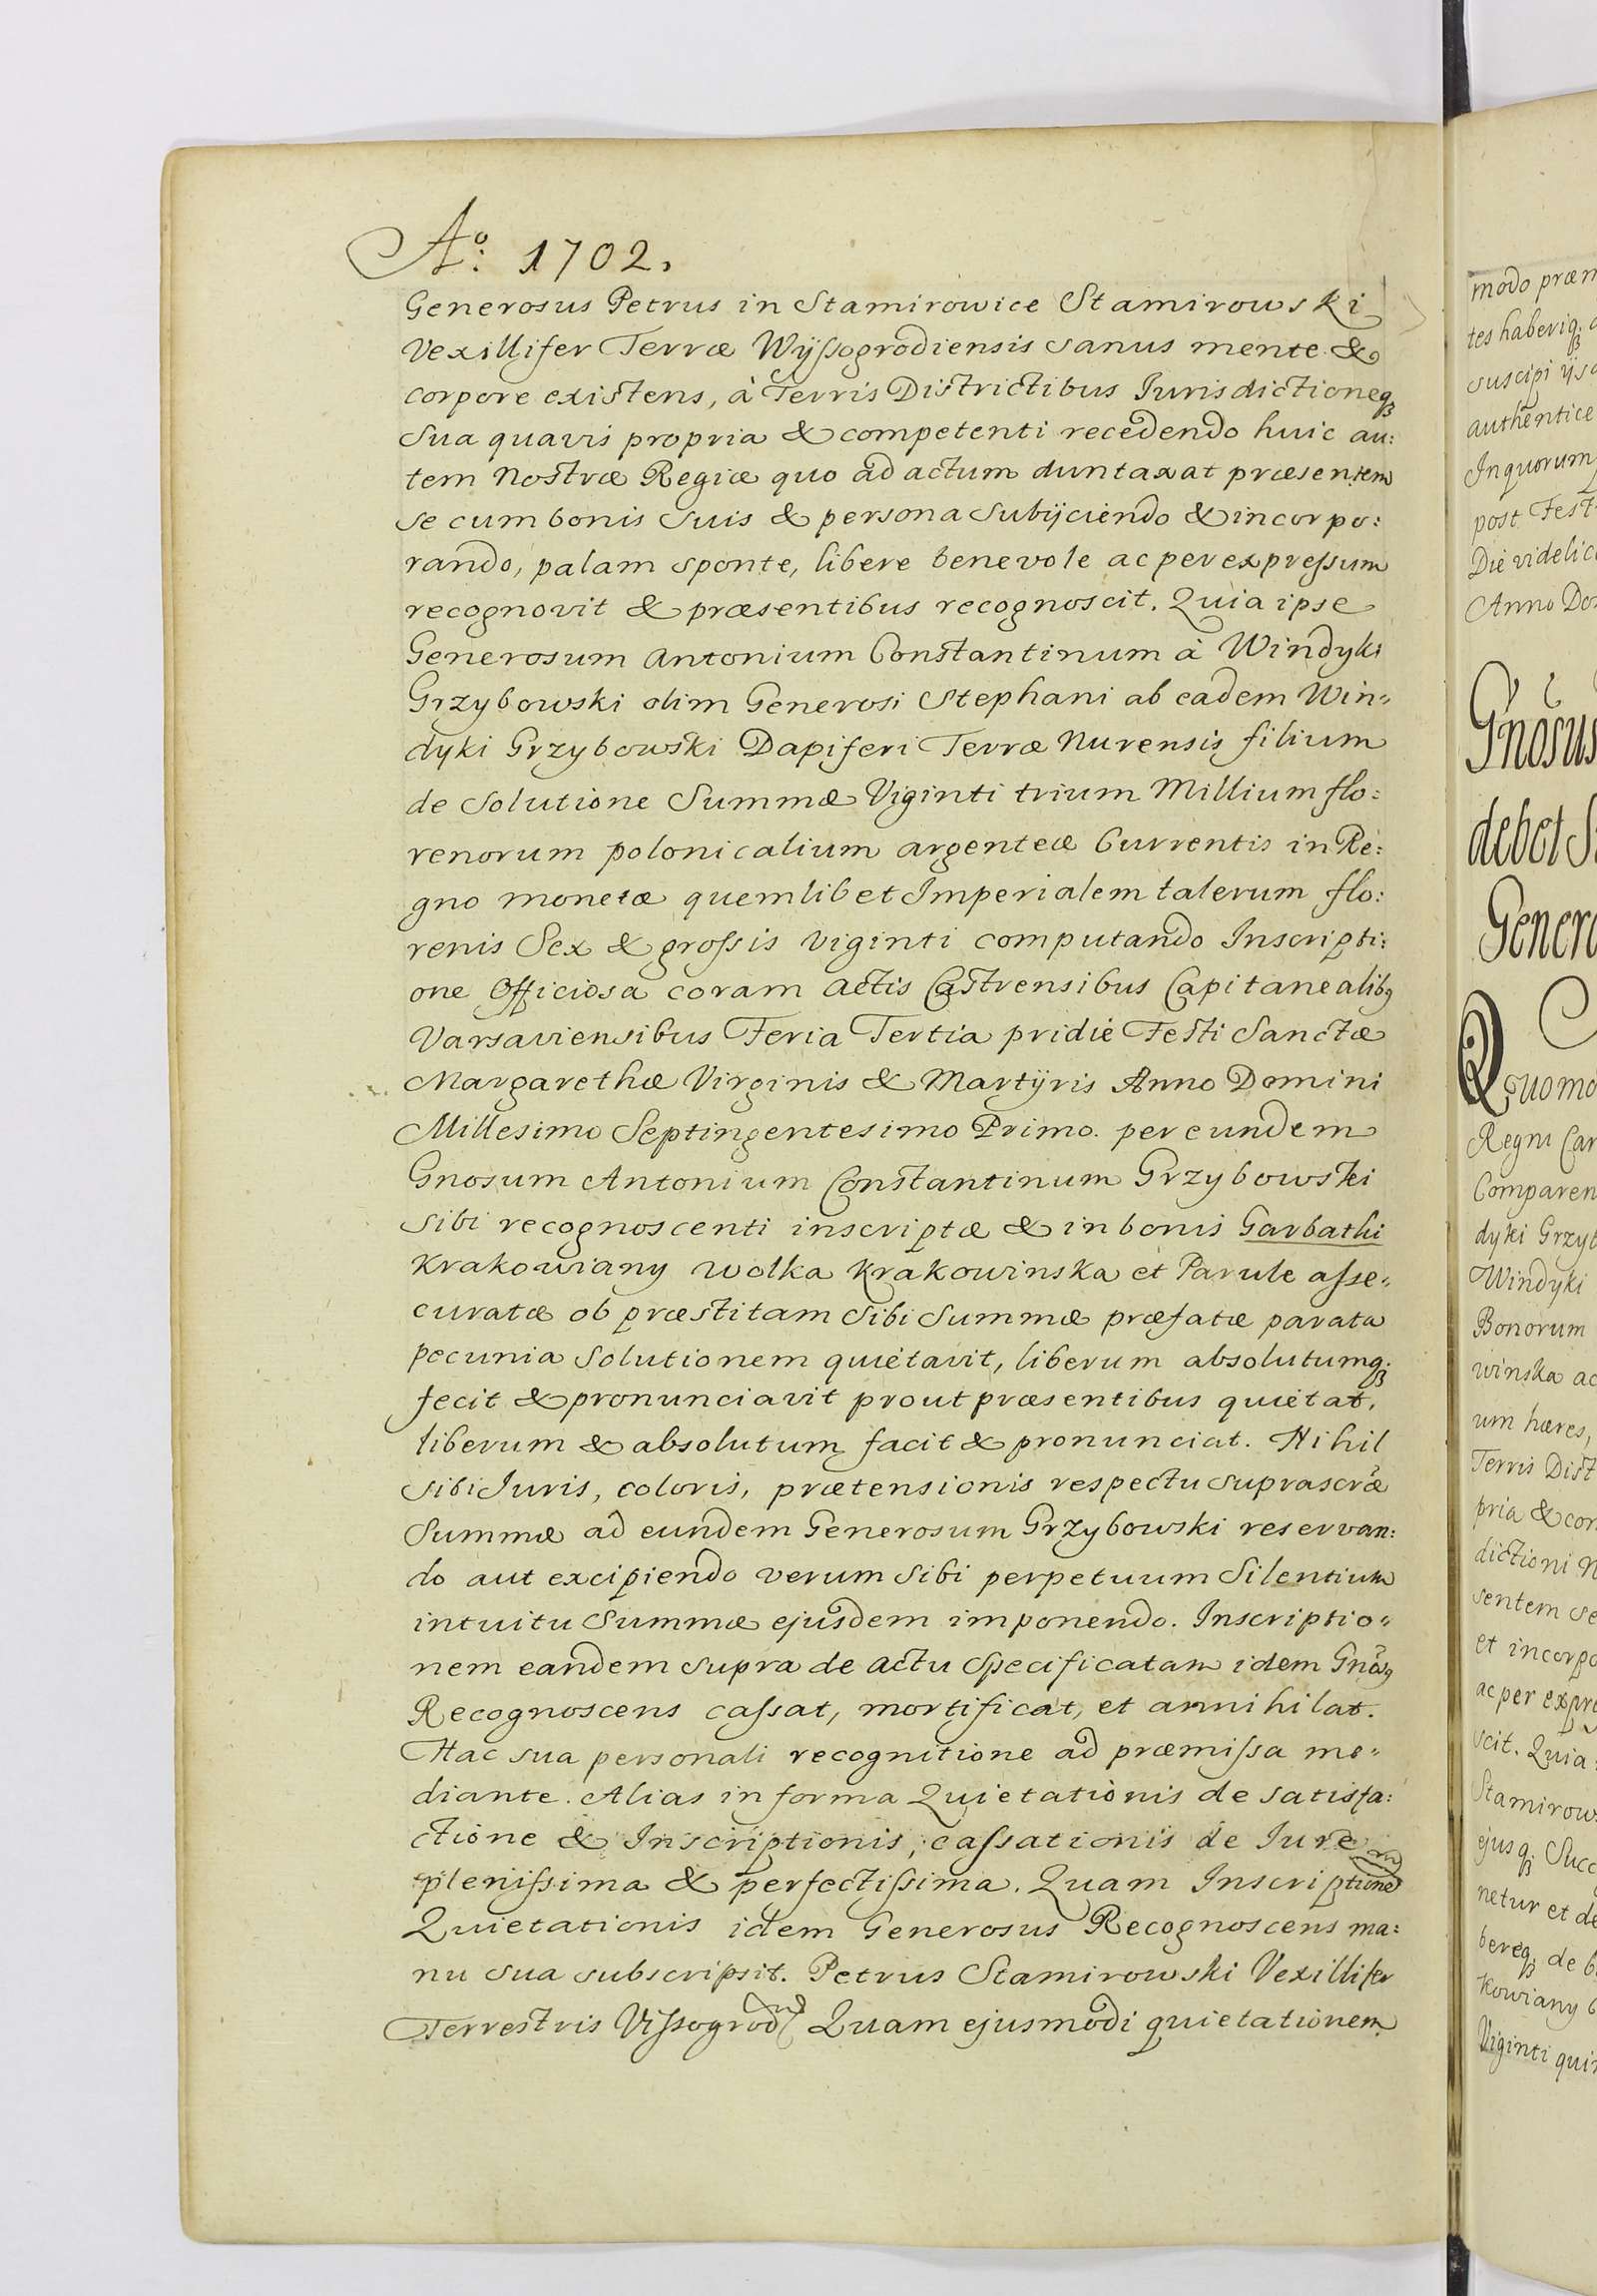 Aº: 1702.
Generosus Petrus in Stamirowice Stamirowski
Vexillifer Terræ Wÿssogrodiensis sanus mente &
corpore existens, à Terris Districtibus Iurisdictioneq₃
sua quavis propria & competenti recedendo huic au:
tem Nostræ Regiæ quo ad actum duntaxat præsentem
se cum bonis suis & persona subijciendo & incorpo:
rando, palam sponte, libere benevole ac per expressum
recognovit & præsentibus recognoscit. Quia ipse
Generosum Antonium Constantinum à Windyki
Grzybowski olim Generosi Stephani ab eadem Win„
dyki Grzybowski Dapiferi Terræ Nurensis filium
de solutione Summæ Viginti trium Millium flo:
renorum polonicalium argenteæ Currentis in Re:
gno monetæ quemlibet Imperialem talerum flo:
renis Sex & grossis viginti computando Inscripti:
one Officiosa coram Actis Castrensibus Capitanealibꝫ
Varsaviensibus Feria Tertia pridie Festi Sanctæ
Margarethæ Virginis & Martÿris Anno Domini
Millesimo Septingentesimo Primo. per eundem
Gnosum Antonium Constantinum Grzybowski
sibi recognoscenti inscriptæ & in bonis Garbathi
Krakowiany Wolka Krakowinska et Parule asse„
curatæ ob præstitam sibi Summæ præfatæ parata
pecunia solutionem quietavit, liberum absolutumq₃
fecit & pronunciavit prout præsentibus quietat,
liberum & absolutum facit & pronunciat. Nihil
sibi Iuris, coloris, prætensionis respectu suprascræ
Summæ ad eundem Generosum Grzybowski reservan:
do aut excipiendo verum sibi perpetuum Silentium
intuitu Summæ ejusdem imponendo. Inscriptio„
nem eandem supra de actu specificatam idem Gnosꝫ
Recognoscens cassat, mortificat, et annihilat.
Hac sua personali recognitione ad præmissa me„
diante. Alias in forma Quietationis de satisfa:
ctione & Inscriptionis, cassationis de Iure
plenissima & perfectissima. Quam Inscriptionē
Quietationis idem Generosus Recognoscens ma:
nu sua subscripsit. Petrus Stamirowski Vexillifer
Terrestris Vissogrod Quam ejusmodi quietationem
modo præm
tes haberiq₃
suscipi ijs
authentice
In quorum
post Fest
Die videlic
Anno Do
Gnosus
debet S
Genero
Quomo
Regni Ca
Comparen
dyki Grzyb
Windyki
Bonorum
winska ac
um hæres,
Terris Dist
pria & con
dictioni N
sentem se
et incorpo
ac per expre
scit. Quia
Stamirow
ejusq₃ Succ
netur et de
bereq₃ de b
Kowiany
Viginti qui